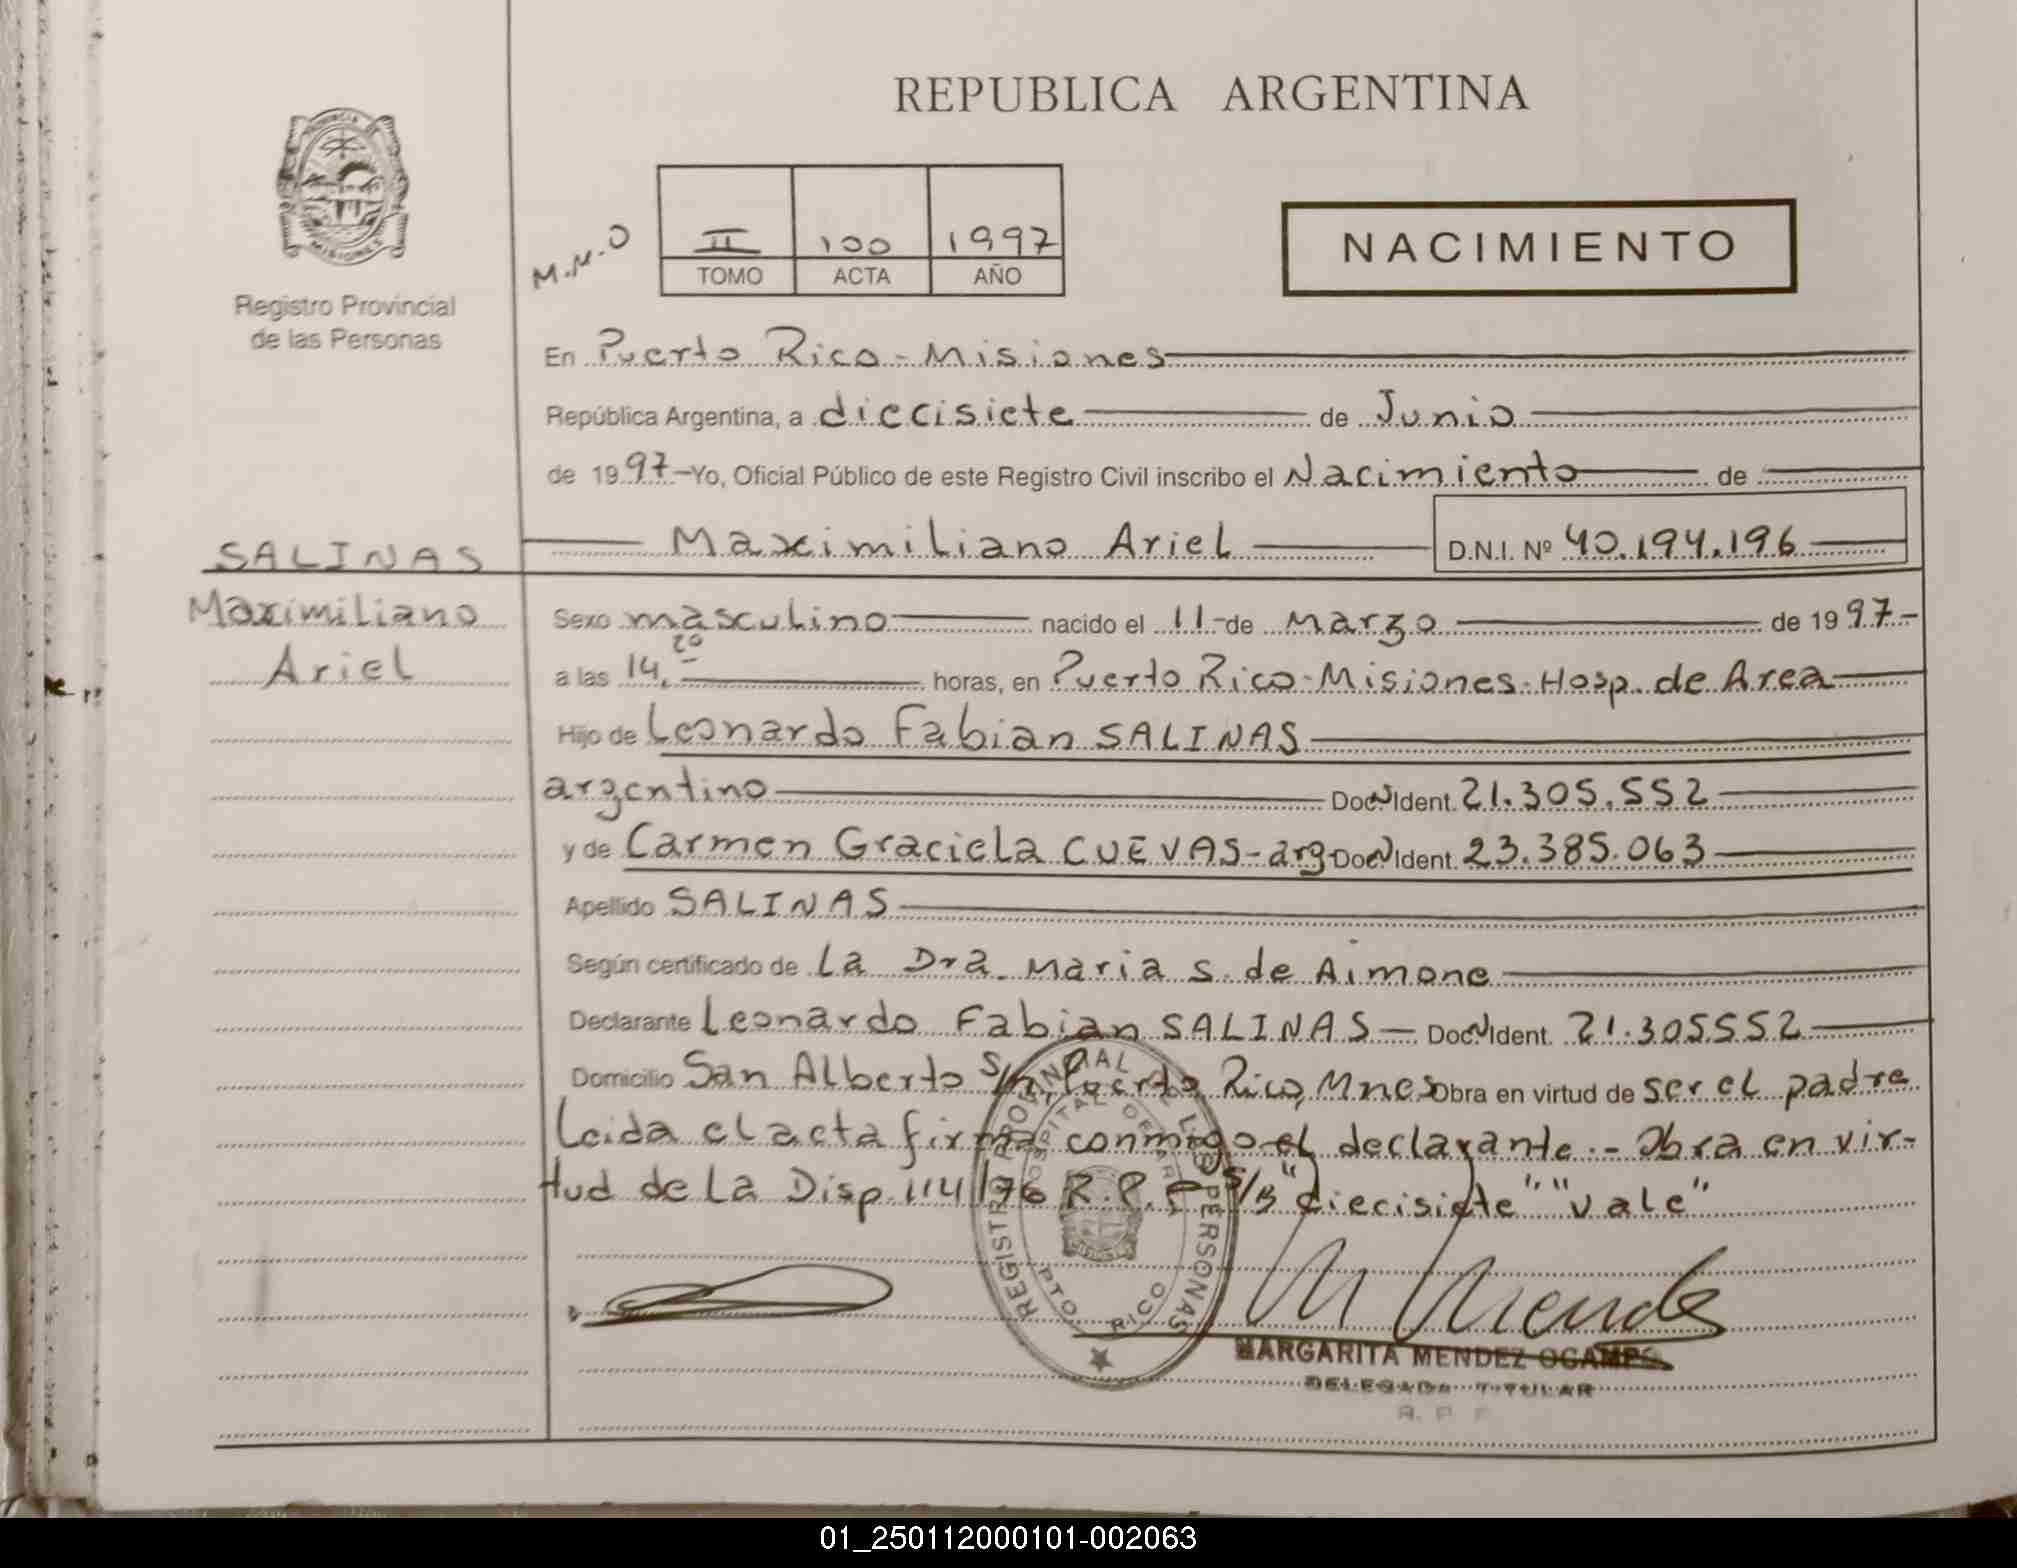 REPUBLICA ARGENTINA
PROVINCIA DE
MISIONES
Registro Provincial
de las Personas
M.M.O
II 100 1997
TOMO ACTA AÑO
NACIMIENTO
En Puerto Rico - Misiones
República Argentina, a diecisiete de Junio
de 1997 - Yo, Oficial Público de este Registro Civil inscribo el Nacimiento de
Maximiliano Ariel D.N.I. Nº 40.194.196
SALINAS
Maximiliano
Ariel
Sexo masculino nacido el 11 - de Marzo de 1997 -
a las 14.20 horas, en Puerto Rico - Misiones - Hosp. de Area
Hijo de Leonardo Fabian SALINAS
argentino Doc. Nº Ident. 21.305.552
y de Carmen Graciela CUEVAS - arg Doc. Nº Ident. 23.385.063
Apellido SALINAS
Según certificado de la Dra. Maria S. de Aimone
Declarante Leonardo Fabian SALINAS - Doc. Nº Ident. 21.305552
Domicilio San Alberto S/n Puerto Rico, Mnes Obra en virtud de ser el padre
Leida el acta firma conmigo el declarante. - Obra en vir-
tud de la Disp. 114/76 R.P.P S/B "diecisiete" "vale"
REGISTRO PROVINCIAL DE LAS PERSONAS
PTO. RICO
M Mendez
MARGARITA MENDEZ OCAMPO
DELEGADA TITULAR
R. P. P
01_250112000101-002063